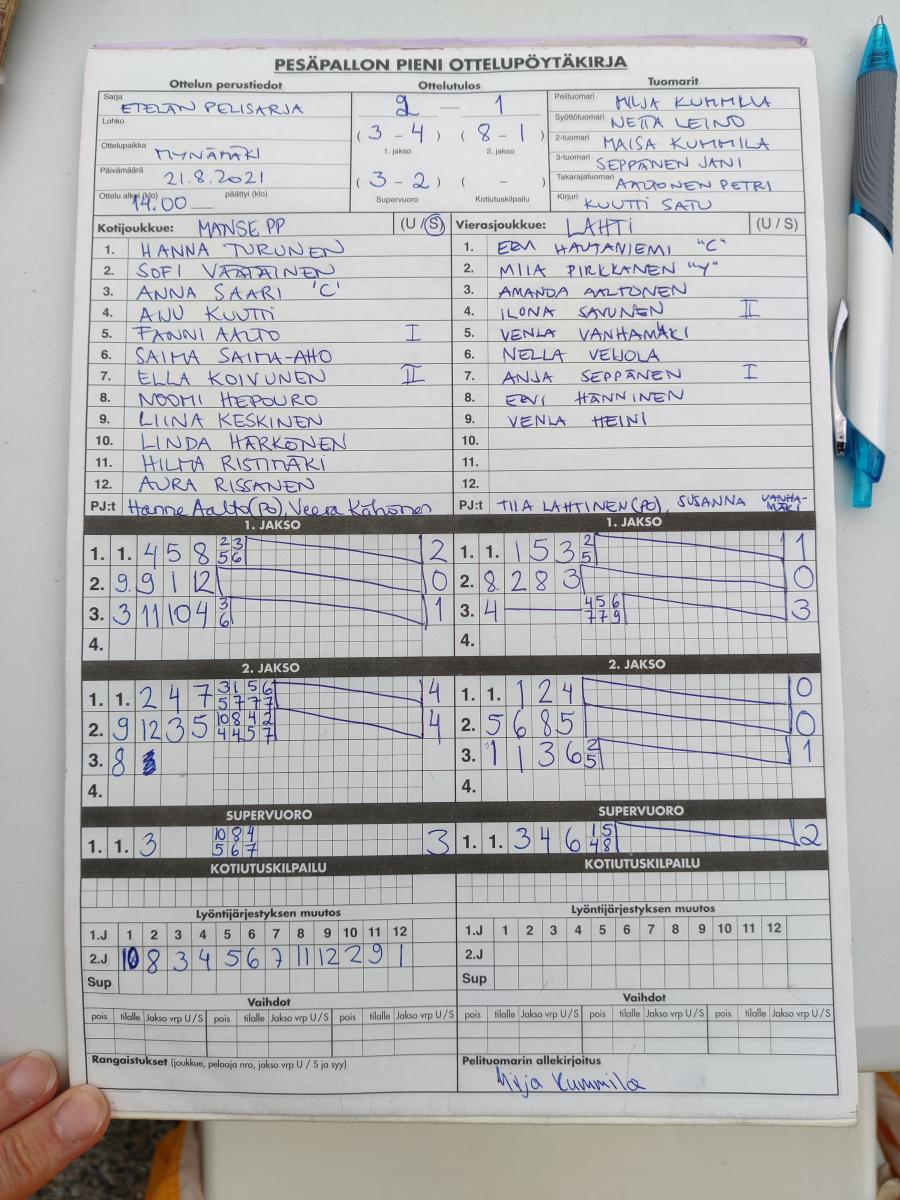 PESÄPALLON PIENI OTTELUPÖYTÄKIRJA
Ottelun perustiedot
Sarja ETELÄN PELISARJA
Lohko
Ottelupaikka MYNÄMÄKI
Päivämäärä 21.8.2021
Ottelu alkoi (klo) 14.00 päättyi (klo)
Ottelutulos
2 — 1
( 3 - 4 ) ( 8 - 1 )
1. jakso 2. jakso
( 3 - 2 ) ( - )
Supervuoro Kotiutuskilpailu
Tuomarit
Pelituomari MILJA KUMMILA
Syöttötuomari NETTA LEINO
2-tuomari MAISA KUMMILA
3-tuomari SEPPÄNEN JANI
Takarajatuomari AALTONEN PETRI
Kirjuri KUUTTI SATU
Kotijoukkue: MANSE PP (U / S)
1. HANNA TURUNEN
2. SOFI VÄÄTÄINEN
3. ANNA SAARI "C"
4. ANU KUUTTI
5. FANNI AALTO I
6. SAIMA SAIMA-AHO
7. ELLA KOIVUNEN II
8. NOOMI HEPOURO
9. LIINA KESKINEN
10. LINDA HARKONEN
11. HILMA RISTIMÄKI
12. AURA RISSANEN
PJ:t Hanne Aalto (PO), Veera Kahonen
Vierasjoukkue: LAHTI (U / S)
1. EEVI HAUTANIEMI "C"
2. MIIA PIRKKANEN "Y"
3. AMANDA AALTONEN
4. ILONA SAVUNEN II
5. VENLA VANHAMÄKI
6. NELLA VEIJOLA
7. ANJA SEPPÄNEN I
8. EEVI HÄNNINEN
9. VENLA HEINI
10.
11.
12.
PJ:t TIIA LAHTINEN (PO), SUSANNA VANHA-MÄKI
1. JAKSO
1. 1. 4 5 8 2 3 5 6 2
2. 9. 9 1 12 0
3. 3 11 10 4 3 6 1
4.
1. JAKSO
1. 1. 1 5 3 2 5 1
2. 8. 2 8 3 0
3. 4 4 5 6 7 7 9 3
4.
2. JAKSO
1. 1. 2 4 7 3 1 5 6 5 7 7 7 4
2. 9 12 3 5 10 8 4 2 4 4 5 7 4
3. 8
4.
2. JAKSO
1. 1. 1 2 4 0
2. 5 6 8 5 0
3. 1 1 3 6 2 5 1
4.
SUPERVUORO
1. 1. 3 10 8 4 5 6 7 3
SUPERVUORO
1. 1. 3 4 6 1 5 4 8 2
KOTIUTUSKILPAILU
KOTIUTUSKILPAILU
Lyöntijärjestyksen muutos
1.J 1 2 3 4 5 6 7 8 9 10 11 12
2.J 10 8 3 4 5 6 7 11 12 2 9 1
Sup
Lyöntijärjestyksen muutos
1.J 1 2 3 4 5 6 7 8 9 10 11 12
2.J
Sup
Vaihdot
pois tilalle Jakso vrp U / S pois tilalle Jakso vrp U / S pois tilalle Jakso vrp U / S
Vaihdot
pois tilalle Jakso vrp U / S pois tilalle Jakso vrp U / S pois tilalle Jakso vrp U / S
Rangaistukset (joukkue, pelaaja nro, jakso vrp U / S ja syy)
Pelituomarin allekirjoitus
Milja Kummila